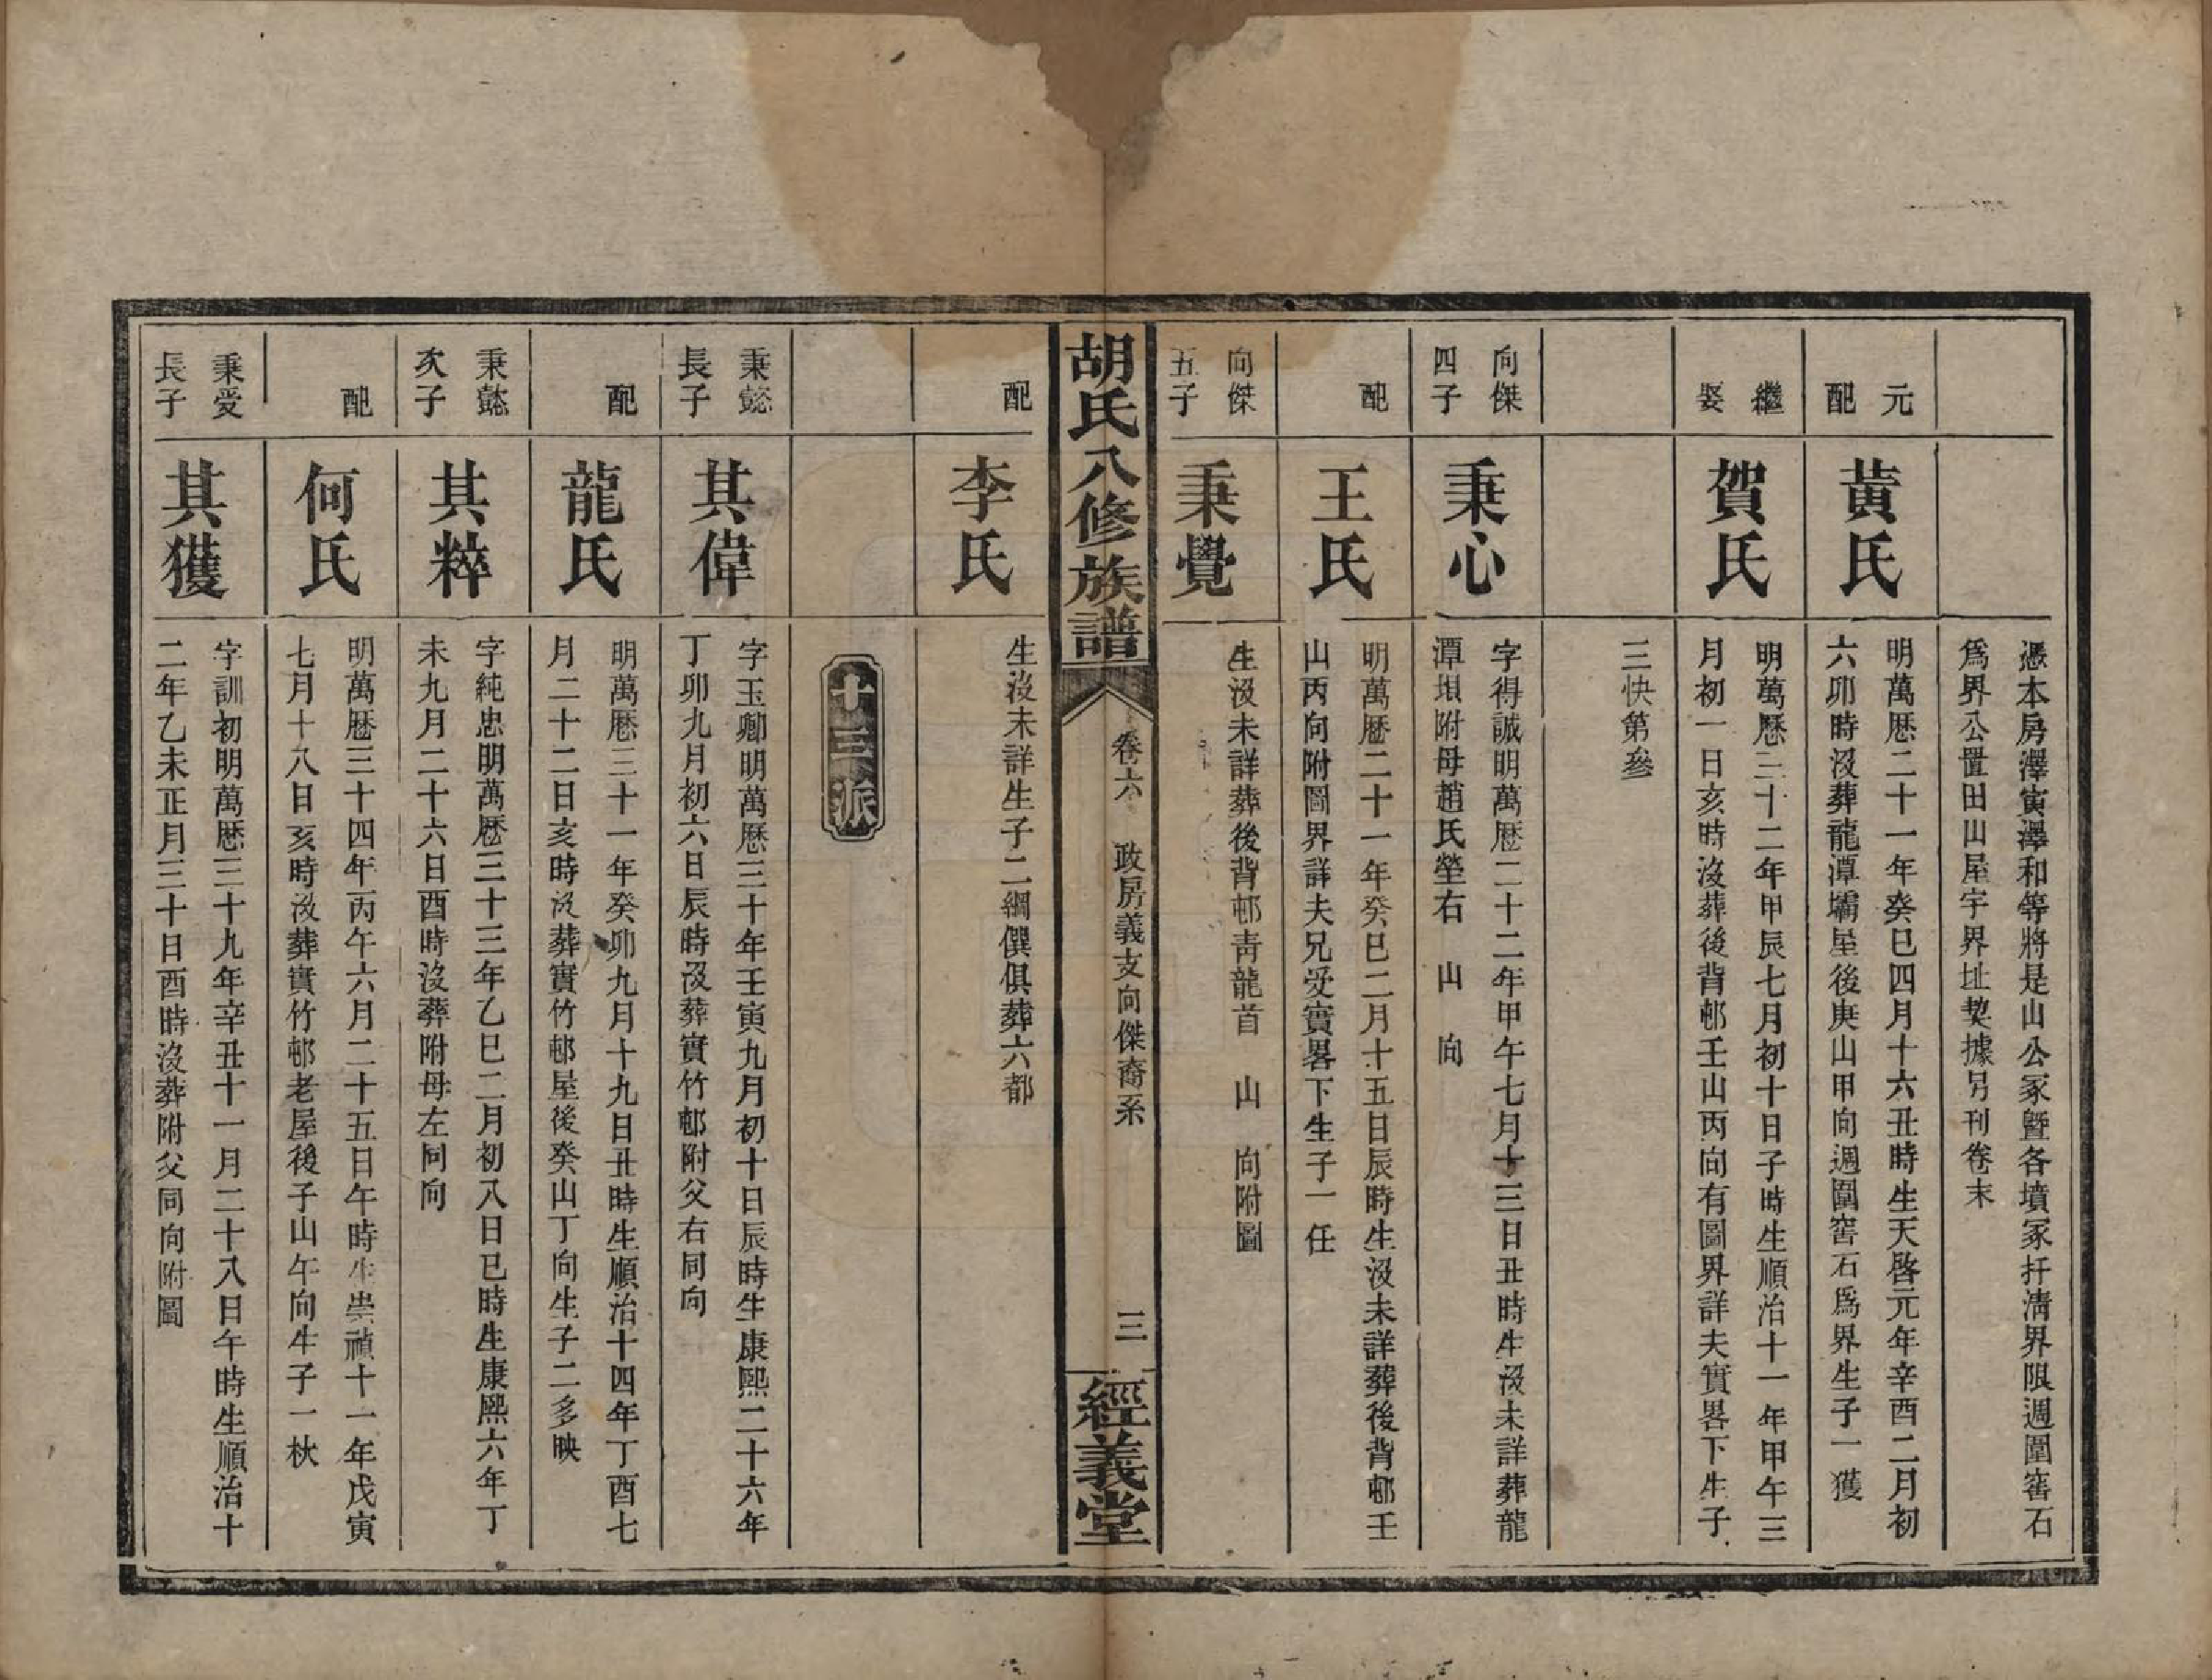 憑本房澤寅澤和等將是山公冢曁各墳冢扦淸界限週圍窖石
爲界公置田山屋宇界址契據另刊卷末
元配
黃氏
明萬歷二十一年癸巳四月十六丑時生天啓元年辛酉二月初
六卯時沒葬龍潭壩屋後庚山甲向週圍窖石爲界生子一獲
繼娶
賀氏
明萬歷三十二年甲辰七月初十日子時生順治十一年甲午三
月初一日亥時沒葬後背邨壬山丙向有圖界詳夫實畧下生子
三快第參
向傑
四子
秉心
字得誠明萬歷二十二年甲午七月十三日丑時生沒未詳葬龍
潭垻附母趙氏塋右 山 向
配
王氏
明萬歷二十一年癸巳二月十五日辰時生沒未詳葬後背邨壬
山丙向附圖界詳夫兄受實畧下生子一任
向傑
五子
秉覺
生沒未詳葬後背邨靑龍首 山 向附圖
胡氏八修族譜
卷六 政房義支向傑裔系
三
經義堂
配
李氏
生沒未詳生子二綱僎俱葬六都
十三派
秉懿
長子
其偉
字玉卿明萬歷三十年壬寅九月初十日辰時生康熙二十六年
丁卯九月初六日辰時沒葬實竹邨附父右同向
配
龍氏
明萬歷三十一年癸卯九月十九日丑時生順治十四年丁酉七
月二十二日亥時沒葬實竹邨屋後癸山丁向生子二多映
秉懿
次子
其粹
字純忠明萬歷三十三年乙巳二月初八日巳時生康熙六年丁
未九月二十六日酉時沒葬附母左同向
配
何氏
明萬歷三十四年丙午六月二十五日午時生崇禎十一年戊寅
七月十八日亥時沒葬實竹邨老屋後子山午向生子一秋
秉受
長子
其獲
字訓初明萬歷三十九年辛丑十一月二十八日午時生順治十
二年乙未正月三十日酉時沒葬附父同向附圖